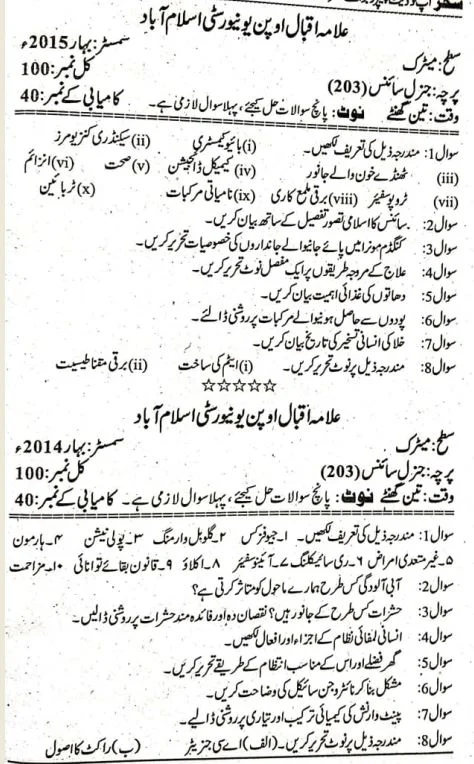 علامہ اقبال اوپن یونیورسٹی اسلام آباد
سطح: میٹرک سمسٹر: بہار 2015ء
پرچہ: جنرل سائنس (203) کل نمبر: 100
وقت: تین گھنٹے نوٹ: پانچ سوالات حل کیجئے، پہلا سوال لازمی ہے۔ کامیابی کے نمبر: 40
سوال 1: مندرجہ ذیل کی تعریف لکھیں۔ (i) بائیو کیمسٹری (ii) سیکنڈری کنزیومرز
(iii) ٹھنڈے خون والے جانور (iv) کیمیکل ڈائجیشن (v) صحت (vi) انزائم
(vii) ٹروپوسفیئر (viii) برقی ملمع کاری (ix) نامیاتی مرکبات (x) ٹربائین
سوال 2: سائنس کا اسلامی تصور تفصیل کے ساتھ بیان کریں۔
سوال 3: کنگڈم مونرا میں پائے جانیوالے جانداروں کی خصوصیات تحریر کریں۔
سوال 4: علاج کے مروجہ طریقوں پر ایک مفصل نوٹ تحریر کریں۔
سوال 5: دھاتوں کی غذائی اہمیت بیان کریں۔
سوال 6: پودوں سے حاصل ہونیوالے مرکبات پر روشنی ڈالئے۔
سوال 7: خلا کی انسانی تسخیر کی تاریخ بیان کریں۔
سوال 8: مندرجہ ذیل پر نوٹ تحریر کریں۔ (i) ایٹم کی ساخت (ii) برقی مقناطیسیت
☆☆☆☆☆
علامہ اقبال اوپن یونیورسٹی اسلام آباد
سطح: میٹرک سمسٹر: بہار 2014ء
پرچہ: جنرل سائنس (203) کل نمبر: 100
وقت: تین گھنٹے نوٹ: پانچ سوالات حل کیجئے، پہلا سوال لازمی ہے۔ کامیابی کے نمبر: 40
سوال 1: مندرجہ ذیل کی تعریف لکھیں۔ ۱۔ جیوفزکس ۲۔ گلوبل وارمنگ ۳۔ پولی نیشن ۴۔ ہارمون
۵۔ غیر متعدی امراض ۶۔ ری سائیکلنگ ۷۔ آئینوسفیئر ۸۔ اکلاؤ ۹۔ قانون بقائے توانائی ۱۰۔ مزاحمت
سوال 2: آبی آلودگی کس طرح ہمارے ماحول کو متاثر کرتی ہے؟
سوال 3: حشرات کس طرح کے جانور ہیں؟ نقصان دہ اور فائدہ مند حشرات پر روشنی ڈالیں۔
سوال 4: انسانی لمفائی نظام کے اجزاء اور افعال لکھیں۔
سوال 5: گھر فضلے اور اس کے مناسب انتظام کے طریقے تحریر کریں۔
سوال 6: مشکل بنا کر نائٹروجن سائیکل کی وضاحت کریں۔
سوال 7: پینٹ وارنش کی کیمیائی ترکیب اور تیاری پر روشنی ڈالیے۔
سوال 8: مندرجہ ذیل پر نوٹ تحریر کریں۔ (الف) اے سی جنریٹر (ب) راکٹ کا اصول